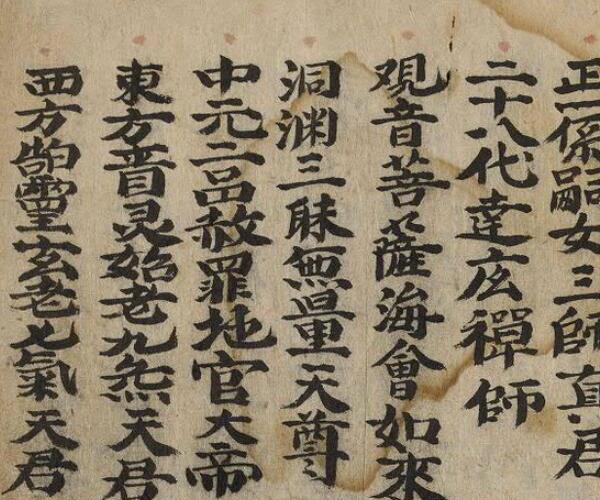 正一係嗣女三師真君
二十八代達庅禪師
覌音菩薩海會如來
洞渊三昧無量天尊
中元二品赦罪地官大帝
東方晋灵始老九炁天君
西方皓靈玄老七氣天君